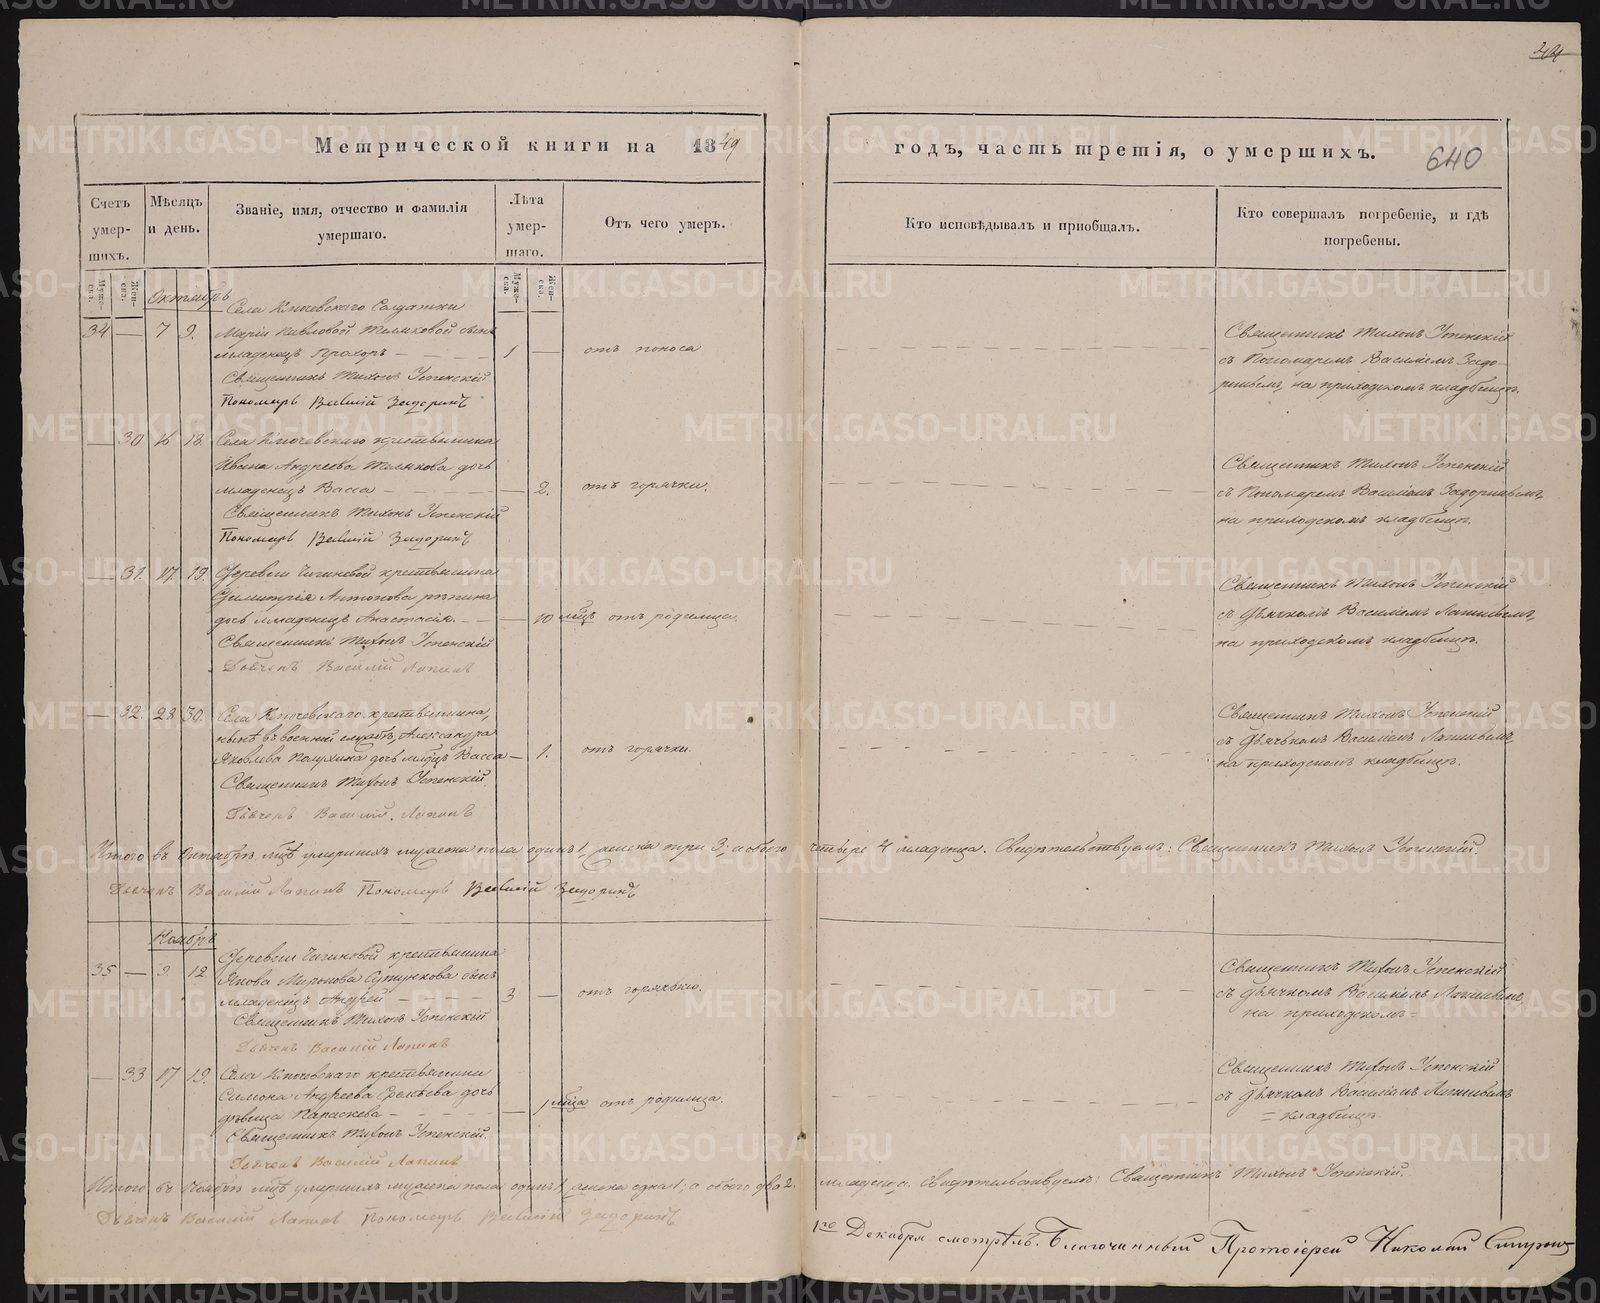 44
Метрической книги на 1849
годъ, часть третія, о умершихъ.
640
Счетъ умер-шихъ.
Мѣсяцъ и день.
Званіе, имя, отчество и фамилія умершаго.
Лѣта умер-шаго.
Отъ чего умеръ.
Кто исповѣдывалъ и пріобщалъ.
Кто совершалъ погребеніе, и гдѣ погребены.
Муже-ска.
Жен-ска.
Муже-ска.
Жен-ска.
Октябрь
Села Ключевскаго Солдатки
34 — 7 9. Маріи Павловой сынъ
младенецъ Прохоръ — 1 — отъ поноса
Священникъ Тихонъ Успенскій
Пономарь Василій Задоринъ
Священникъ Тихонъ Успенскій
съ Пономаремъ Василіемъ Задо-
ринымъ, на приходскомъ кладбищѣ.
— 30 16 18. Села Ключевскаго крестьянина
Ивана Андреева дочь
младенецъ Васса — — 2. отъ горячки.
Священникъ Тихонъ Успенскій
Пономарь Василій Задоринъ
Священникъ Тихонъ Успенскій
съ Пономаремъ Василіемъ Задоринымъ
на приходскомъ кладбищѣ.
— 31. 17. 19. Деревни крестьянина
Димитрія Антонова
дочь младенецъ Анастасія. — — 10 мцъ отъ родимца.
Священникъ Тихонъ Успенскій
Дьячекъ Василій Лапинъ
Священникъ Тихонъ Успенскій
съ Дьячкомъ Василіемъ Лапинымъ,
на приходскомъ кладбищѣ.
— 32. 28 30. Села Ключевскаго крестьянина,
нынѣ въ военной службѣ, Александра
Яковлева дочь млдцъ Васса — 1. отъ горячки.
Священникъ Тихонъ Успенскій.
Дьячекъ Василій Лапинъ
Священникъ Тихонъ Успенскій
съ Дьячкомъ Василіемъ Лапинымъ,
на приходскомъ кладбищѣ.
Итого въ Октябрѣ мцѣ умершихъ мужеска пола одинъ 1, женска три 3, а обоего четыре 4 младенца. Свидѣтельствуемъ: Священникъ Тихонъ Успенскій.
Дьячекъ Василій Лапинъ Пономарь Василій Задоринъ
Ноябрь
Деревни крестьянина
35 — 9 12 Якова Миронова сынъ
младенецъ Андрей — 3 — отъ горячки.
Священникъ Тихонъ Успенскій
Дьячекъ Василій Лапинъ
Священникъ Тихонъ Успенскій
съ Дьячкомъ Василіемъ Лапинымъ
на приходскомъ =
— 33 17 19. Села Ключевскаго крестьянина
Симона Андреева дочь
дѣвица Параскева — — 1 мца отъ родимца.
Священникъ Тихонъ Успенскій.
Дьячекъ Василій Лапинъ
Священникъ Тихонъ Успенскій
съ Дьячкомъ Василіемъ Лапинымъ
= кладбищѣ.
Итого въ Ноябрѣ мцѣ умершихъ мужеска пола одинъ 1, женска одна 1, а обоего два 2. младенца. Свидѣтельствуемъ: Священникъ Тихонъ Успенскій.
Дьячекъ Василій Лапинъ Пономарь Василій Задоринъ
1го Декабря смотрѣлъ. Благочинный Протоіерей Николай
METRIKI.GASO-URAL.RU